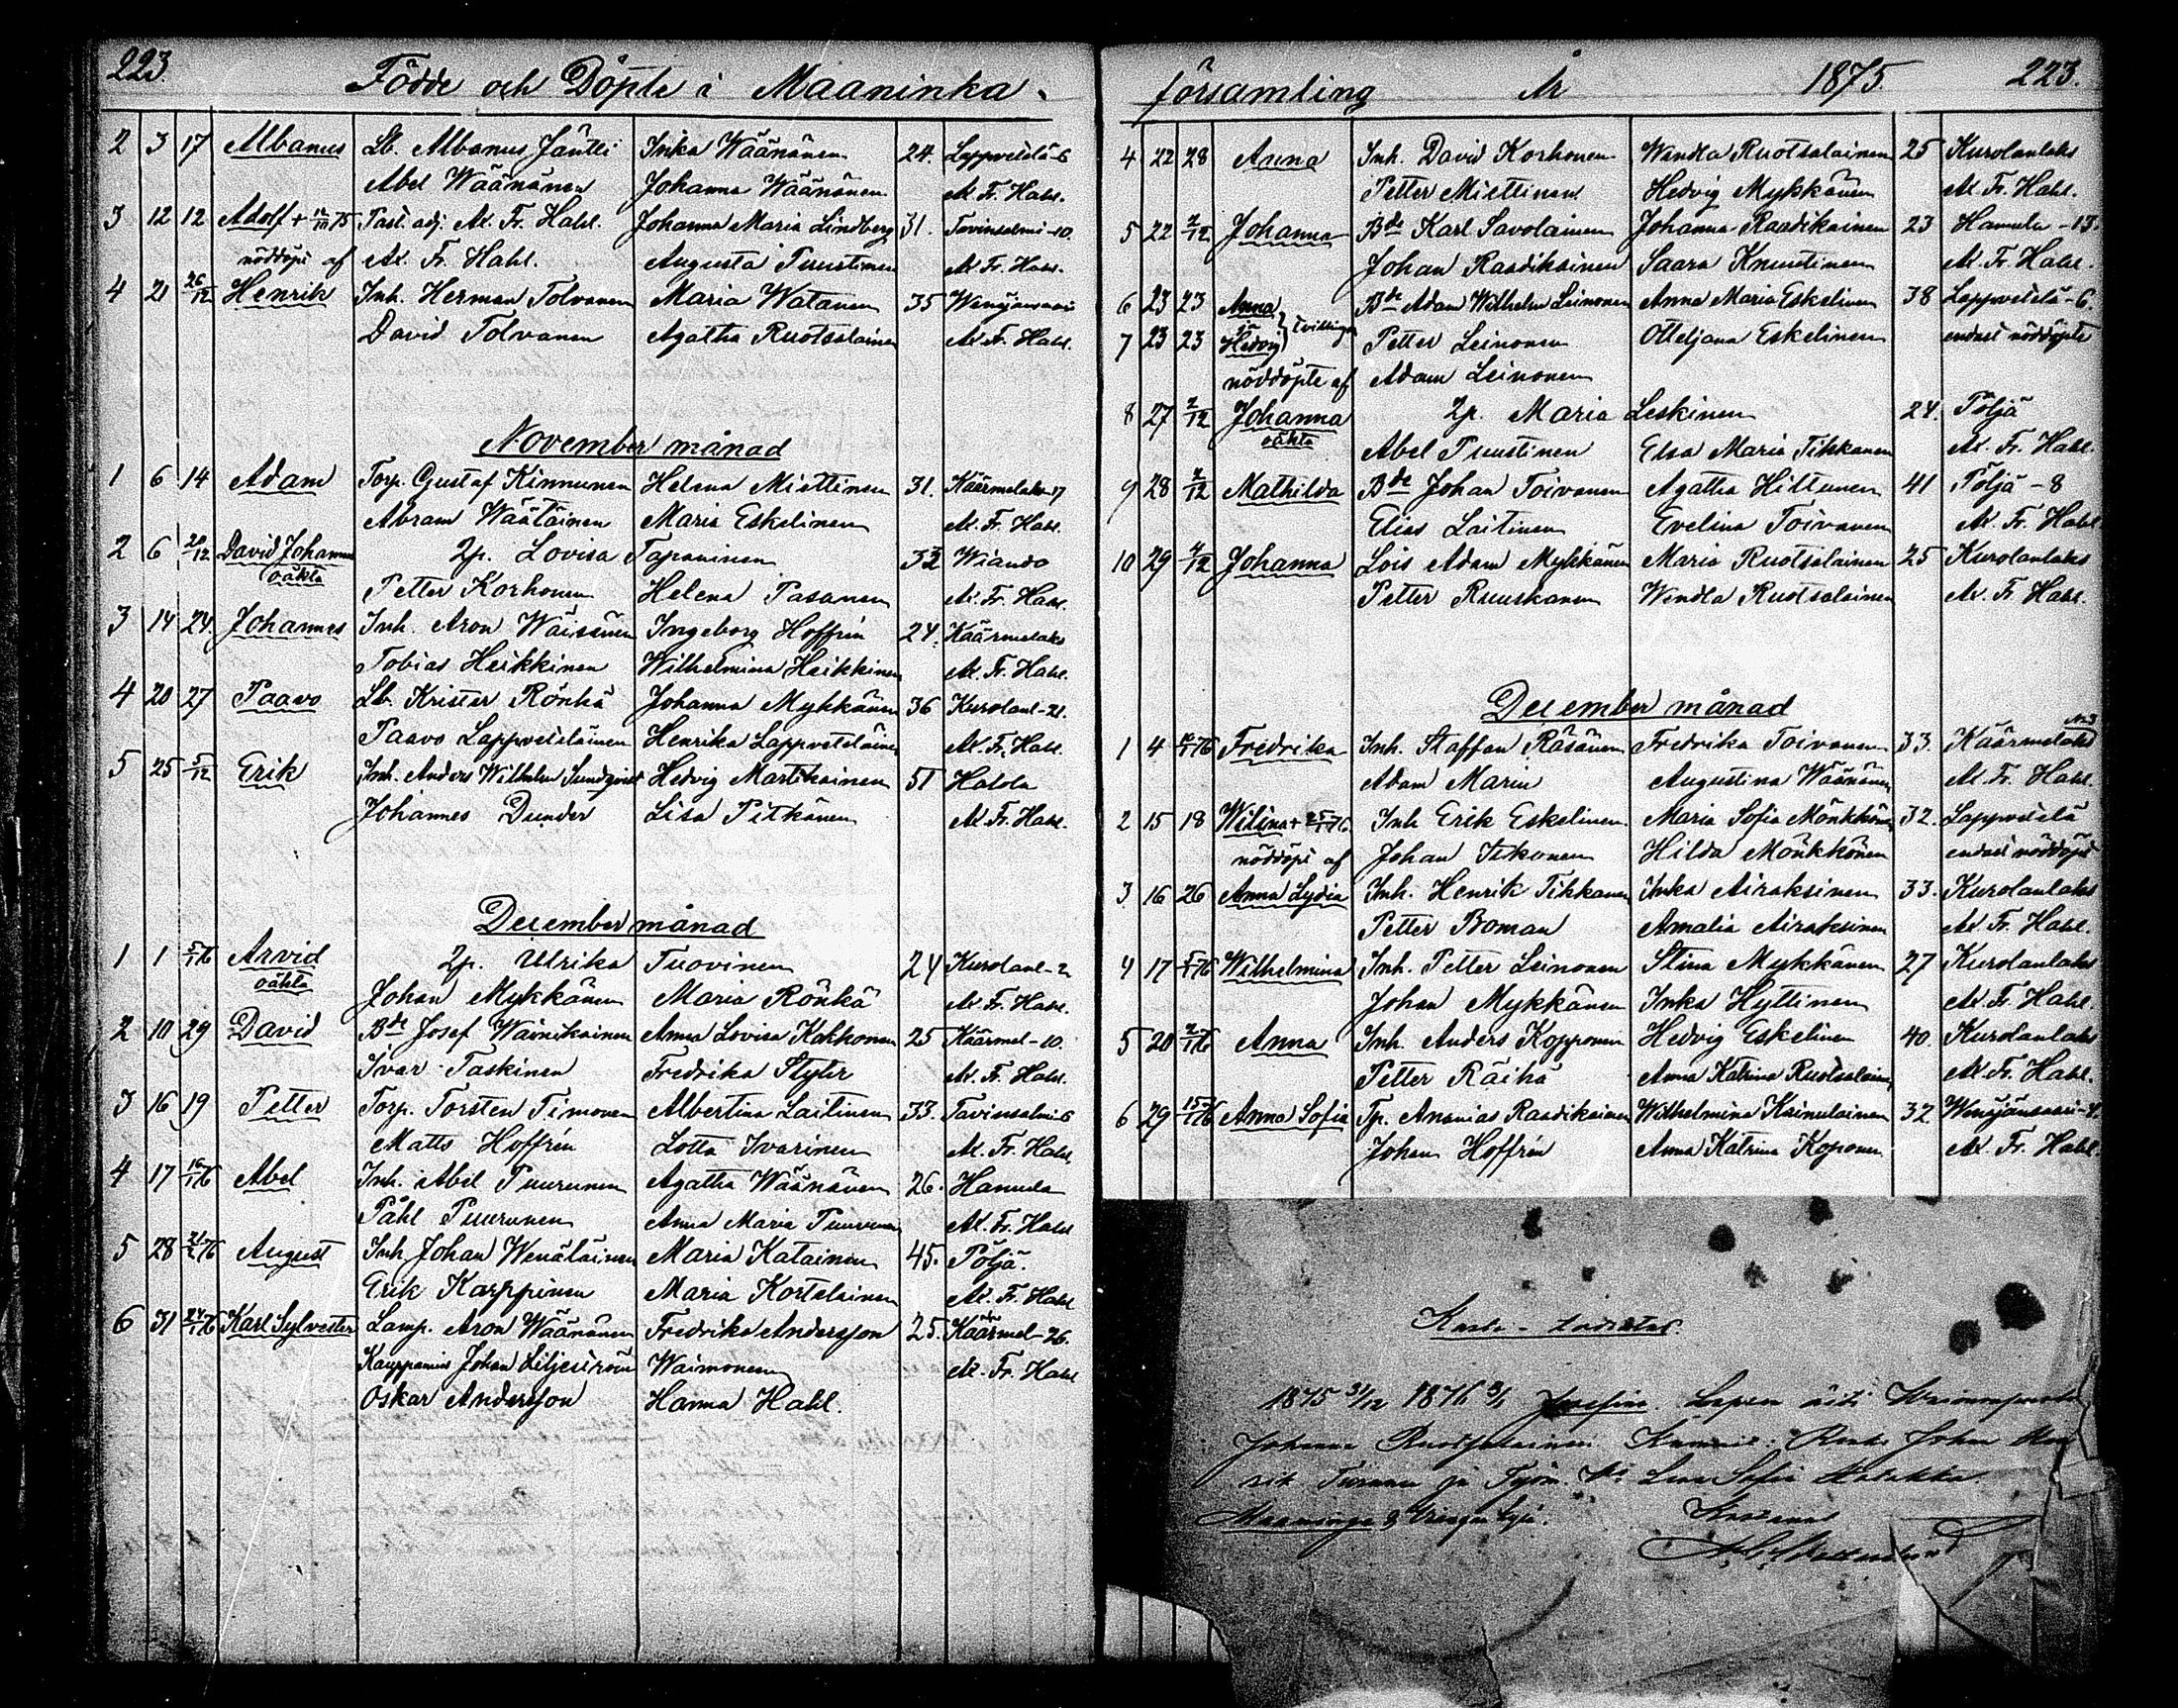 223.
Födde och Döpte i Maaninka.
2 3 17 Albanus Lb. Albanus Jäntti Inka Wäänänen 24. Lappvetelä-6
Abel Wäänänen Johanna Wäänänen Ax. Fr. Hahl.
3 12 12 Adolf + 12/10 75 Past. adj. Ax. Fr. Hahl. Johanna Maria Lindberg 31. Tavinsalmi-10.
nöddöpt af Ax. Fr. Hahl. Augusta Puustinen Ax. Fr. Hahl.
4 21 26/12 Henrik Inh. Herman Tolvanen Maria Watanen 35 Wenäjänsaari
David Tolvanen Agatha Ruotsalainen Ax. Fr. Hahl.
November månad
1 6 14 Adam Torp. Gustaf Kinnunen Helena Miettinen 31. Käärmelaks-17
Abram Wäätäinen Maria Eskelinen Ax. Fr. Hahl.
2 6 20/12 David Johannes 2p. Lovisa Tapaninen 33 Wiando
oäkta Petter Korhonen Helena Pasanen Ax. Fr. Hahl.
3 14 24. Johannes Inh. Aron Wäisänen Ingeborg Hoffrén 24. Käärmelaks
Tobias Heikkinen Wilhelmina Heikkinen Ax. Fr. Hahl.
4 20 27 Paavo Lb. Krister Rönkä Johanna Mykkänen 36 Kurolanl-21.
Paavo Lappveteläinen Henrika Lappveteläinen Ax. Fr. Hahl.
5 25 5/12 Erik Inh. Anders Wilhelm Sundqvist Hedvig Martikainen 51 Halola
Johannes Dunder Lisa Pitkänen Ax. Fr. Hahl.
December månad
1 1 5/1 76 Arvid 2p. Ulrika Tuovinen 24 Kurolanl-2
oäkta Johan Mykkänen Maria Rönkä Ax. Fr. Hahl.
2 10 29 David Bde Josef Wäinikainen Anna Lovisa Kokkonen 25 Käärmel-10.
Ivar Taskinen Fredrika Styler Ax. Fr. Hahl.
3 16 19 Petter Torp. Torsten Timonen Albertina Laitinen 33. Tavinsalmi-6
Matts Hoffrén Lotta Ivarinen Ax. Fr. Hahl.
4 17 16/1 76 Abel Inh. Abel Puurunen Agatha Wäänänen 26. Hamula
Påhl Puurunen Anna Maria Puurunen Ax. Fr. Hahl
5 28 21/2 76 August Inh. Johan Wenäläinen Maria Katainen 45. Pöljä.
Erik Karppinen Maria Kortelainen Ax. Fr. Hahl
6 31 24/1 76 Karl Sylvester Lamp. Aron Wäänänen Fredrika Andersson 25. Käärmel-26.
Kauppamies Johan Liljeström Waimonen Ax. Fr. Hahl
Oskar Andersson Hanna Hahl.
församling År 1875. 223.
4 22 28 Anna Inh. David Korhonen Wendla Ruotsalainen 25 Kurolanlaks
Petter Miettinen Hedvig Mykkänen Ax. Fr. Hahl.
5 22 2/12 Johanna Bde Karl Savolainen Johanna Raadikainen 23 Hamula-13.
Johan Raadikainen Saara Knuutinen Ax. Fr. Hahl.
6 23 23 Anna Bde Adam Wilhelm Leinonen Anna Maria Eskelinen 38 Lappvetelä-6.
7 23 23 Hedvig tvillingar Petter Leinonen Otteljana Eskelinen endast nöddöpte
nöddöpte af Adam Leinonen
8 27 2/12 Johanna 2p. Maria Leskinen 24. Pöljä
oäkta Abel Puustinen Elsa Maria Tikkanen Ax. Fr. Hahl.
9 28 2/12 Mathilda Bde Johan Toivanen Agatha Hiltunen 41 Pöljä-8
Elias Laitinen Evelina Toivanen Ax. Fr. Hahl
10 29 4/12 Johanna Lois Adam Mykkänen Maria Ruotsalainen 25 Kurolanlaks
Petter Ruuskanen Wendla Ruotsalainen Ax. Fr. Hahl.
December månad
1 4 16/1 76 Fredrika Inh. Staffan Räsänen Fredrika Toivanen 33. Käärmelaks
Adam Marin Augustina Wäänänen Ax. Fr. Hahl.
2 15 18 Wilina + 25/1 76 Inh Erik Eskelinen Maria Sofia Mönkkönen 32. Lappvetelä
nöddöpt af Johan Iskonen Hilda Mönkkönen endast nöddöpt
3. 16 26 Anna Lydia Inh. Henrik Tikkanen Inka Airaksinen 33. Kurolanlaks
Petter Boman Amalia Airaksinen Ax. Fr. Hahl.
4 17 5/1 76 Wilhelmina Inh. Petter Leinonen Stina Mykkänen 27 Kurolanlaks
Johan Mykkänen Inka Hyttinen Ax. Fr. Hahl.
5 20 2/1 76 Anna Inh. Anders Kopponen Hedvig Eskelinen 40. Kurolanlaks
Petter Räihä Anna Katrina Ruotsalainen Ax. Fr. Hahl.
6 29 15/1 76 Anna Sofia Tp. Ananias Raadikainen Wilhelmina Kainulainen 32. Wenäjänsaari-4.
Johan Hoffrén Anna Katrina Koponen Ax. Fr. Hahl.
Kaste-todistus.
1875 31/12 1876 3/1 Josefina. Lapsen äiti
Johanna Ruotsalainen Kummit: Johan
Turunen ja Lena Sofia
Maaninga